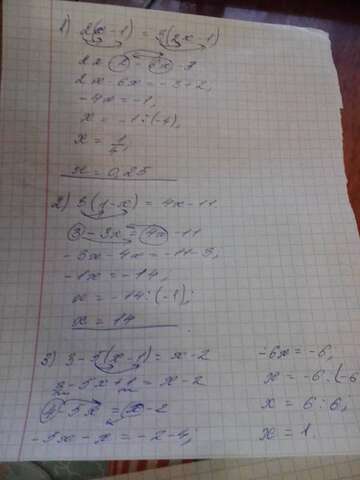 1) 2(x-1) = 3(2x-1)
2x-2 = 6x-3
2x-6x = -3+2,
-4x = -1,
x = -1:(-4),
x = 1/4,
x = 0,25
2) 3(1-x) = 4x-11
3-3x = 4x-11
-3x-4x = -11-3,
-1x = -14,
x = -14:(-1);
x = 14
3) 3-5(x-1) = x-2
3-5x+1 = x-2
4-5x = x-2
-5x-x = -2-4;
-6x = -6,
x = -6:(-6
x = 6:6,
x = 1.